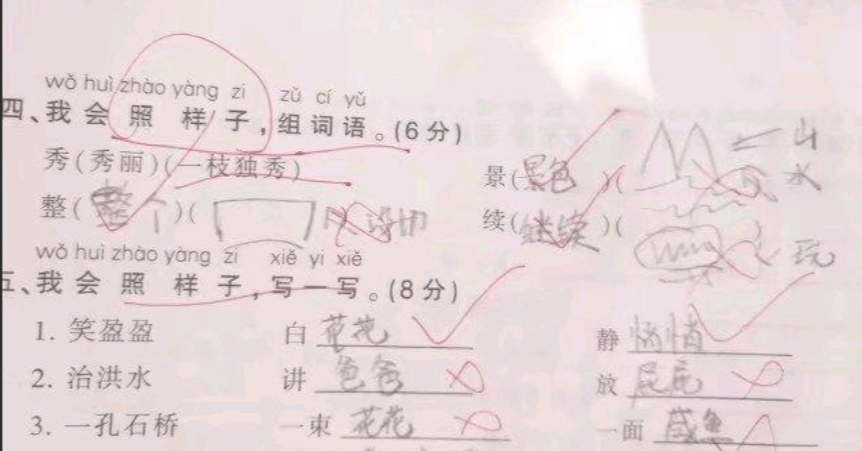 wǒ huì zhào yàng zi zǔ cí yǔ
四、我会照样子，组词语。(6分)
秀(秀丽)(一枝独秀) 景(景色)( 山水
整(整个)( 续(继续)( ) 玩
wǒ huì zhào yàng zi xiě yi xiě
五、我会照样子，写一写。(8分)
1. 笑盈盈 白花花 静悄悄
2. 治洪水 讲爸爸 放屁屁
3. 一孔石桥 一束花花 一面咸鱼